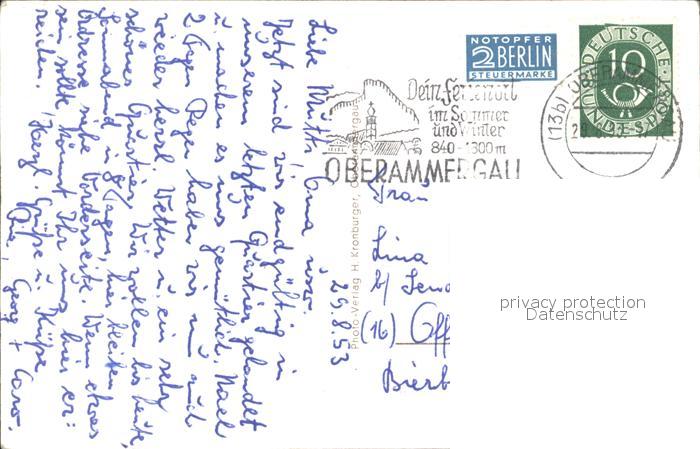 NOTOPFER
2 BERLIN
STEUERMARKE
DEUTSCHE
10
BUNDESPOST
Dein Ferienort
im Sommer
und Winter
840-1300m
OBERAMMERGAU
(13b) OBERAMMERGAU
Photo-Verlag H. Kronburger, Oberammergau
29.8.53
Liebe Mutti, Oma usw.
Jetzt sind wir endgültig in
unserem letzten Quartier gelandet
u. machen es uns gemütlich. Nach
2 Tagen Regen haben wir nun auch
wieder herrl. Wetter u. ein sehr
schönes Quartier. Wir wollen bis heute,
Sonnabend in 8 Tagen, hier bleiben.
Adresse siehe Vorderseite. Wenn etwas
sein sollte, könnt Ihr uns hier er-
reichen. Herzl. Grüße u. Küsse
Georg + Caro.
Frau
Lina
b/
(16) Off
Bierb
privacy protection
Datenschutz